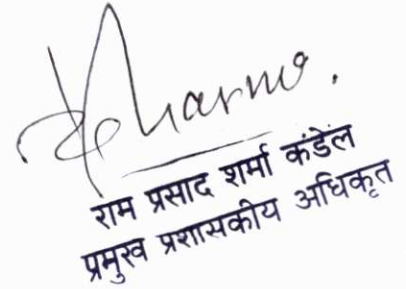 Sharma.
राम प्रसाद शर्मा कंडेल
प्रमुख प्रशासकीय अधिकृत